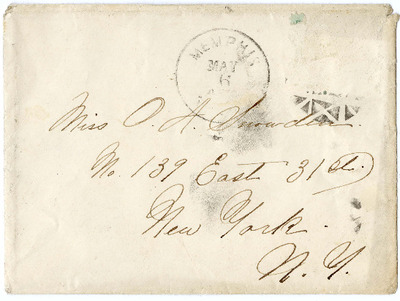 MEMPHIS
MAY
6
Miss O. H. Snowden.
No. 139 East 31 St.
New York.
N. Y.